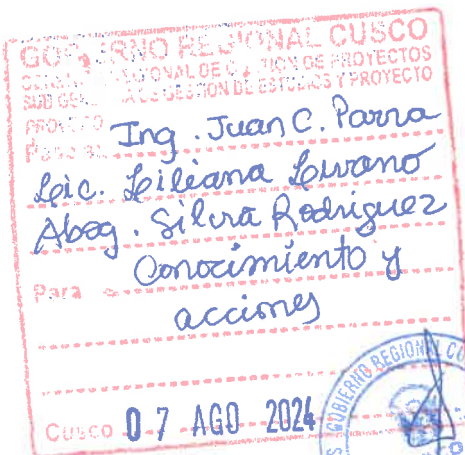 GOBIERNO REGIONAL CUSCO
GESTION DE PROYECTOS
SUB GERENCIA DE GESTION DE ESTUDIOS Y PROYECTO
Ing. Juan C. Parra
Lic. Liliana Livano
Abog. Silvia Rodriguez
Conocimiento y
Para
acciones
Cusco 07 AGO 2024
GOBIERNO REGIONAL CU